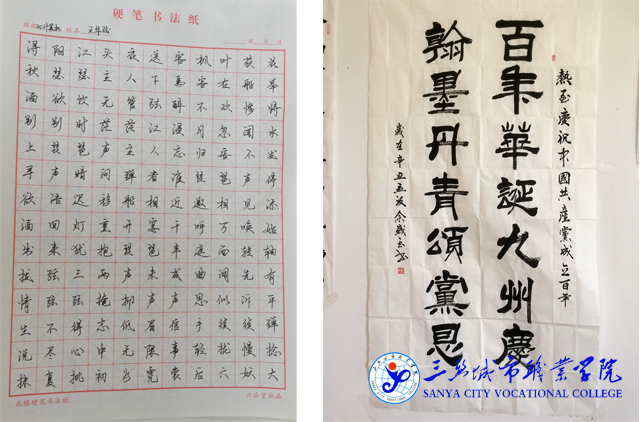 硬笔书法纸
班级 计算机 姓名 年 月 日
浔阳江头夜送客枫叶荻花
秋瑟瑟主人下马客在船举
酒欲饮无管弦醉不欢惨将
别别时茫茫江浸月忽闻水
上琵琶声主人忘归客不发
寻声暗问弹者谁琵琶声停
欲语迟移船相近邀相见添
酒回灯重开宴千呼万唤始
出来犹抱琵琶半遮面转轴
拨弦三两声未成曲调先有
情弦弦掩抑声声思似诉平
生不得志低眉信手续续弹
说尽心中无限事轻拢慢捻
抹复挑初为霓裳后六幺大
米格硬笔书法纸 六品堂出品
熱烈慶祝中國共產黨成立百年
百年華誕九州慶
翰墨丹青頌黨恩
歲在辛丑五月余
三亚城市職業学院
SANYA CITY VOCATIONAL COLLEGE